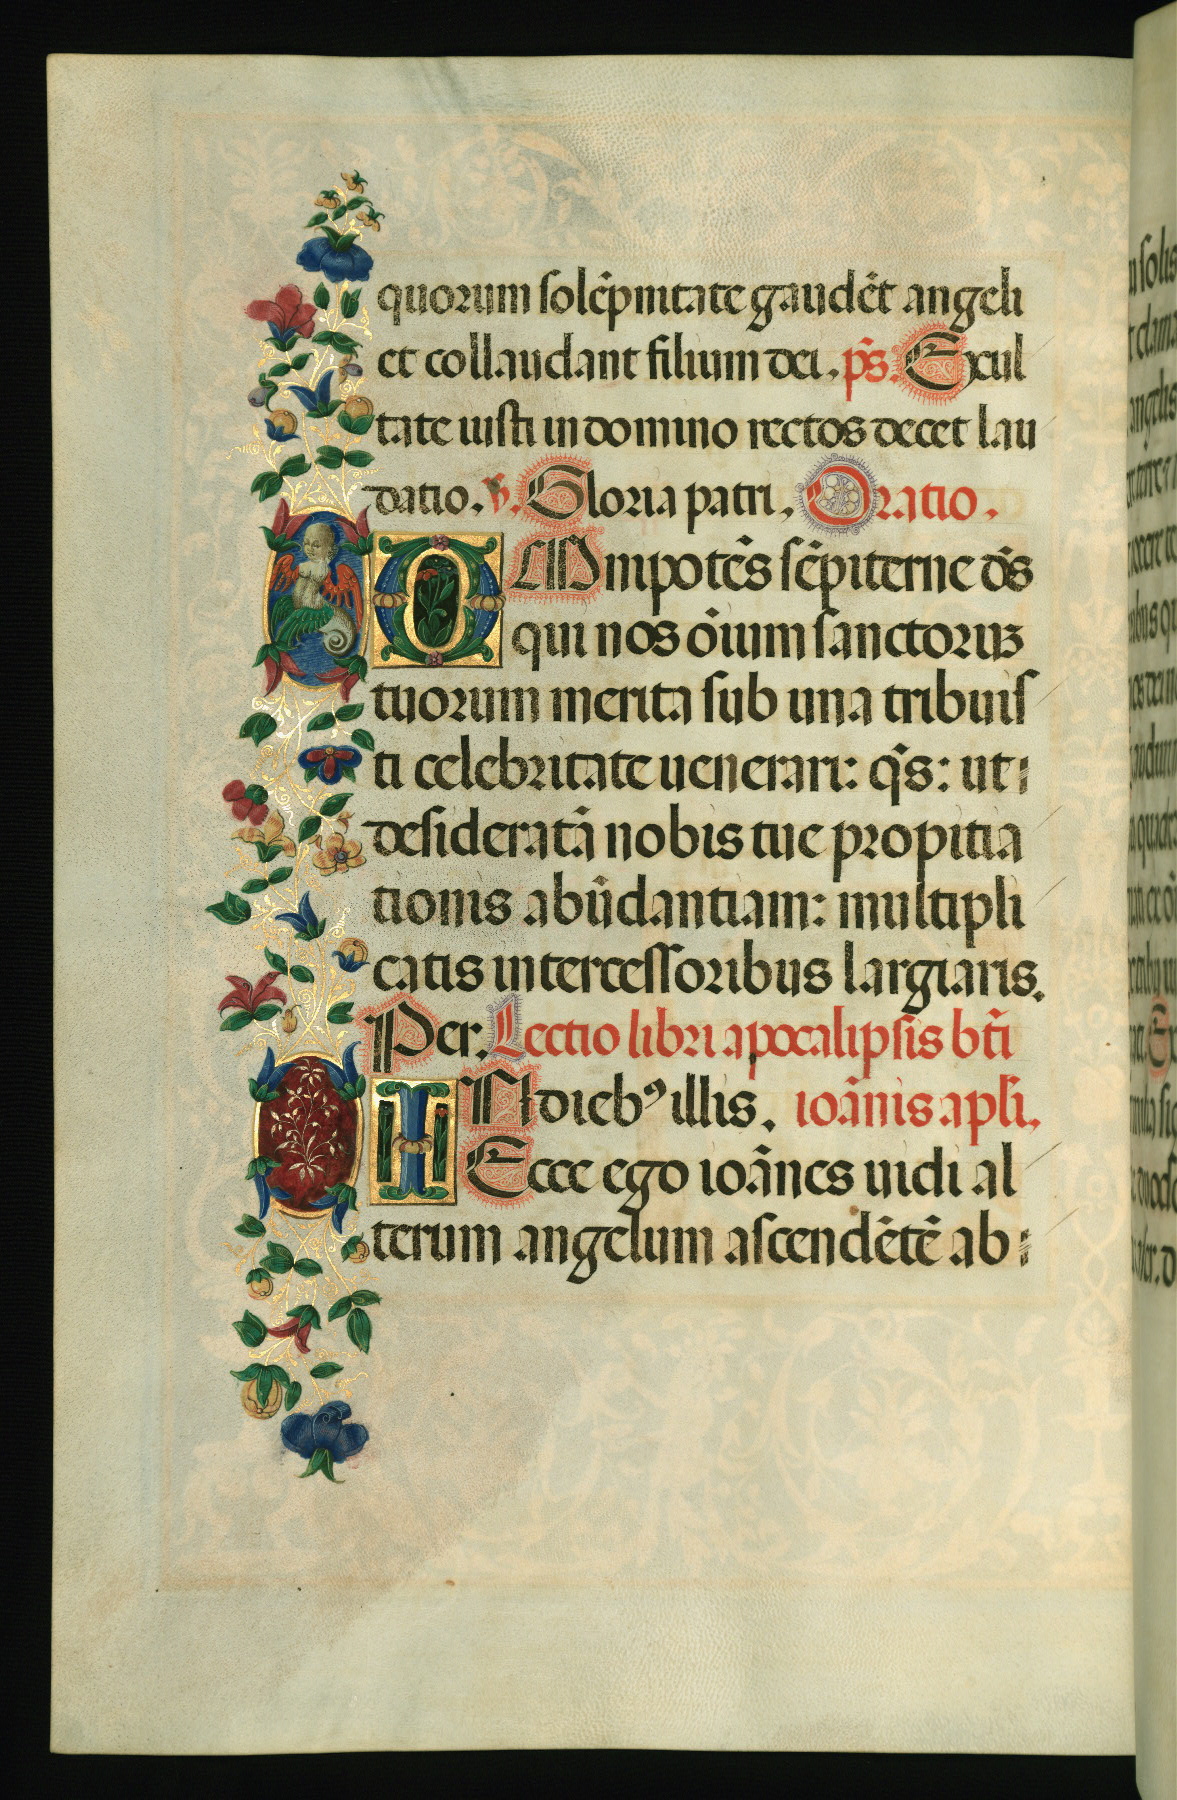 quorum solẽpnitate gaudẽt angeli
et collaudant filium dei. p̃s. Exul
tate iusti in domino rectos decet lau
datio. V̷. Gloria patri. Oratio.
OMnipotẽs sẽpiterne d̃s
qui nos õium sanctoruꝫ
tuorum merita sub una tribuis
ti celebritate uenerari: q̃s: ut
desideratã nobis tue propitia
tionis abũdantiam: multipli
catis intercessoribus largiaris.
Per. Lectio libri apocalipsis bt̃i
IN dieb⁹ illis. ioãnis apl̃i.
Ecce ego ioãnes uidi al
terum angelum ascendẽtẽ ab